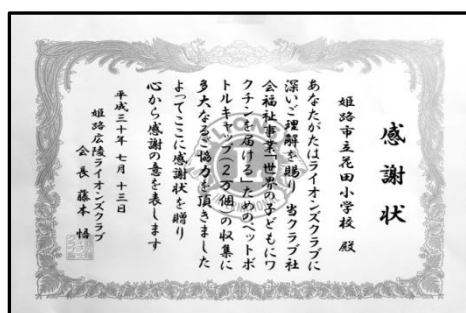 感謝状
姫路市立花田小学校 殿
あなたがたはライオンズクラブに
深いご理解を賜り 当クラブ社
会福祉事業「世界の子どもにワ
クチンを届ける」ためのペットボ
トルキャップ(2万個)の収集に
多大なるご協力を頂きました
よってここに感謝状を贈り
心から感謝の意を表します
平成三十年 七月 十三日
姫路広陵ライオンズクラブ
会長 藤本 悟